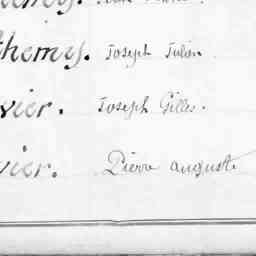 themy. Joseph Julien
vier. Joseph Gilles.
vier. Pierre auguste